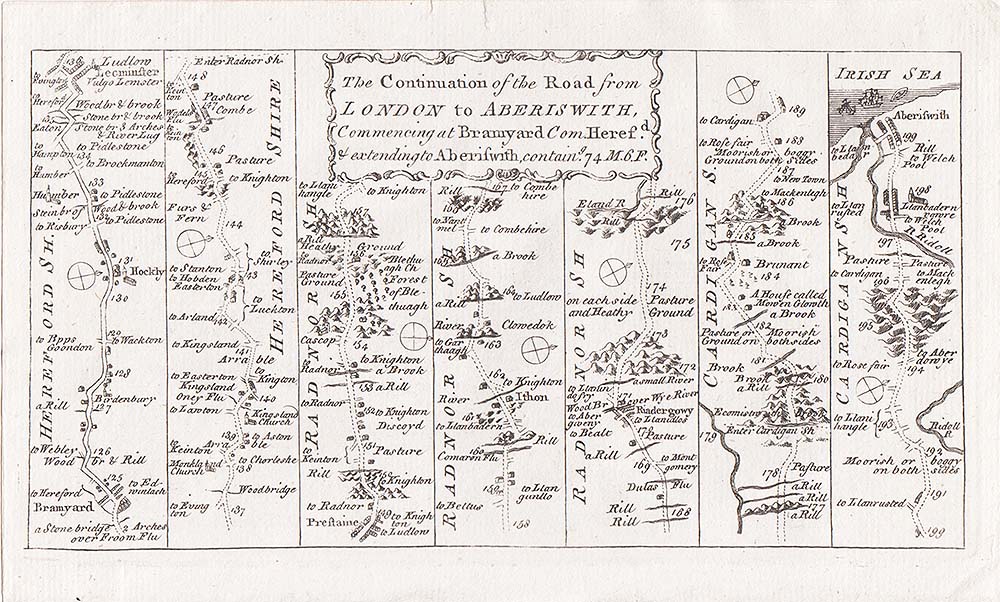 The Continuation of the Road from
LONDON to ABERISWITH,
Commencing at Bramyard Com. Heref.d
& extending to Aberiswith, contain.g 74 M. 6 F.
Ludlow
to Evington
136
Leominster
Vulgo Lemster
to Hereford
Woodbr & brook
Stone br & brook
135
Stone br 3 Arches
& River Lug
to Eaton
to Pidlestone
to Hampton
134
to Brockmanton
to Humber
133
Humber
to Pidlestone
Stein brof
Wood br & brook
to Pidlestone
to Risbury
131
Hockly
130
129
to Bpps
Goondon
to Wackton
128
Bordenbury
127
a Rill
to Webley
126
Wood
br & Rill
125
to Hereford
to Ed-
winlach
Bramyard
a Stone bridge 2 Arches
over Froom Flu
HEREFORD SH.
Enter Radnor Sh.
148
to Keinton
Pasture
147
Combe
145
Pasture
to Knighton
to Hereford
Furs &
Fern
144
to Stanton
to Hobden
Easterton
to Shirley
143
to Luckton
to Arland
142
to Kingsland
141
Arrable
to Easterton
to Kington
Kingsland
140
Oney Flu
to Lanton
Kingsland
Church
139
to Aston
Arrable
to Keinton
to Chorleske
Monkland
Church
138
Woodbridge
to Evington
137
HEREFORD SHIRE
to Llanihangle
to Knighton
157
a Rill
Heathy
Ground
to Radnor
Blethuagh Ch
Pasture
Ground
Forest
of Blethuagh
155
River
Cascop
154
to Knighton
to Radnor
a Brook
153
a Rill
to Radnor
152
to Knighton
Discoyd
151
Pasture
to Keinton
Rill
to Knighton
to Radnor
149
to Knighton
Prestaine
to Ludlow
RADNOR SH
Rill
167
to Combehire
166
to Nantmel
to Combehire
165
a Brook
164
to Ludlow
a Rill
River
Clowedok
to Garthaagh
163
162
to Knighton
River
Ithon
161
to Llanbadern
Rill
160
Comaron Flu
159
to Llangunllo
to Bettus
158
RADNOR SH
Rill
Eland R
176
Rill
175
174
on each side
and Heathy
Pasture
Ground
173
172
a small River
171
over Wye River
Wood Br
Riadergowy
to Abergweny
to Llandlos
to Bealt
170
Pasture
a Rill
169
to Montgomery
Dulas Flu
Rill
Rill
168
RADNOR SH
189
to Cardigan
to Rose fair
188
Moorish or boggy
Ground on both Sides
187
to New Town
to Mackenlegh
186
Brook
185
a Brook
to Rose
Fair
Brunant
184
A House called
183
a Brook
182
Pasture or Moorish
Ground on both sides
181
Brook
Brook
180
a Rill
Enter Cardigan Sh.
179
178
Pasture
a Rill
a Rill
177
a Rill
CARDIGAN S.
IRISH SEA
Aberiswith
199
Rill
to Llanbedar
to Welch
Pool
198
to Llanrusted
Llanbadern
to Welch
Pool
R Ridell
197
Pasture
Pasture
to Cardigan
to Mackenlegh
196
195
to Aberdovye
to Rose fair
194
to Llanihangle
193
Ridoll
R.
192
Moorish or boggy
on both sides
191
to Llanrusted
199
CARDIGAN SH